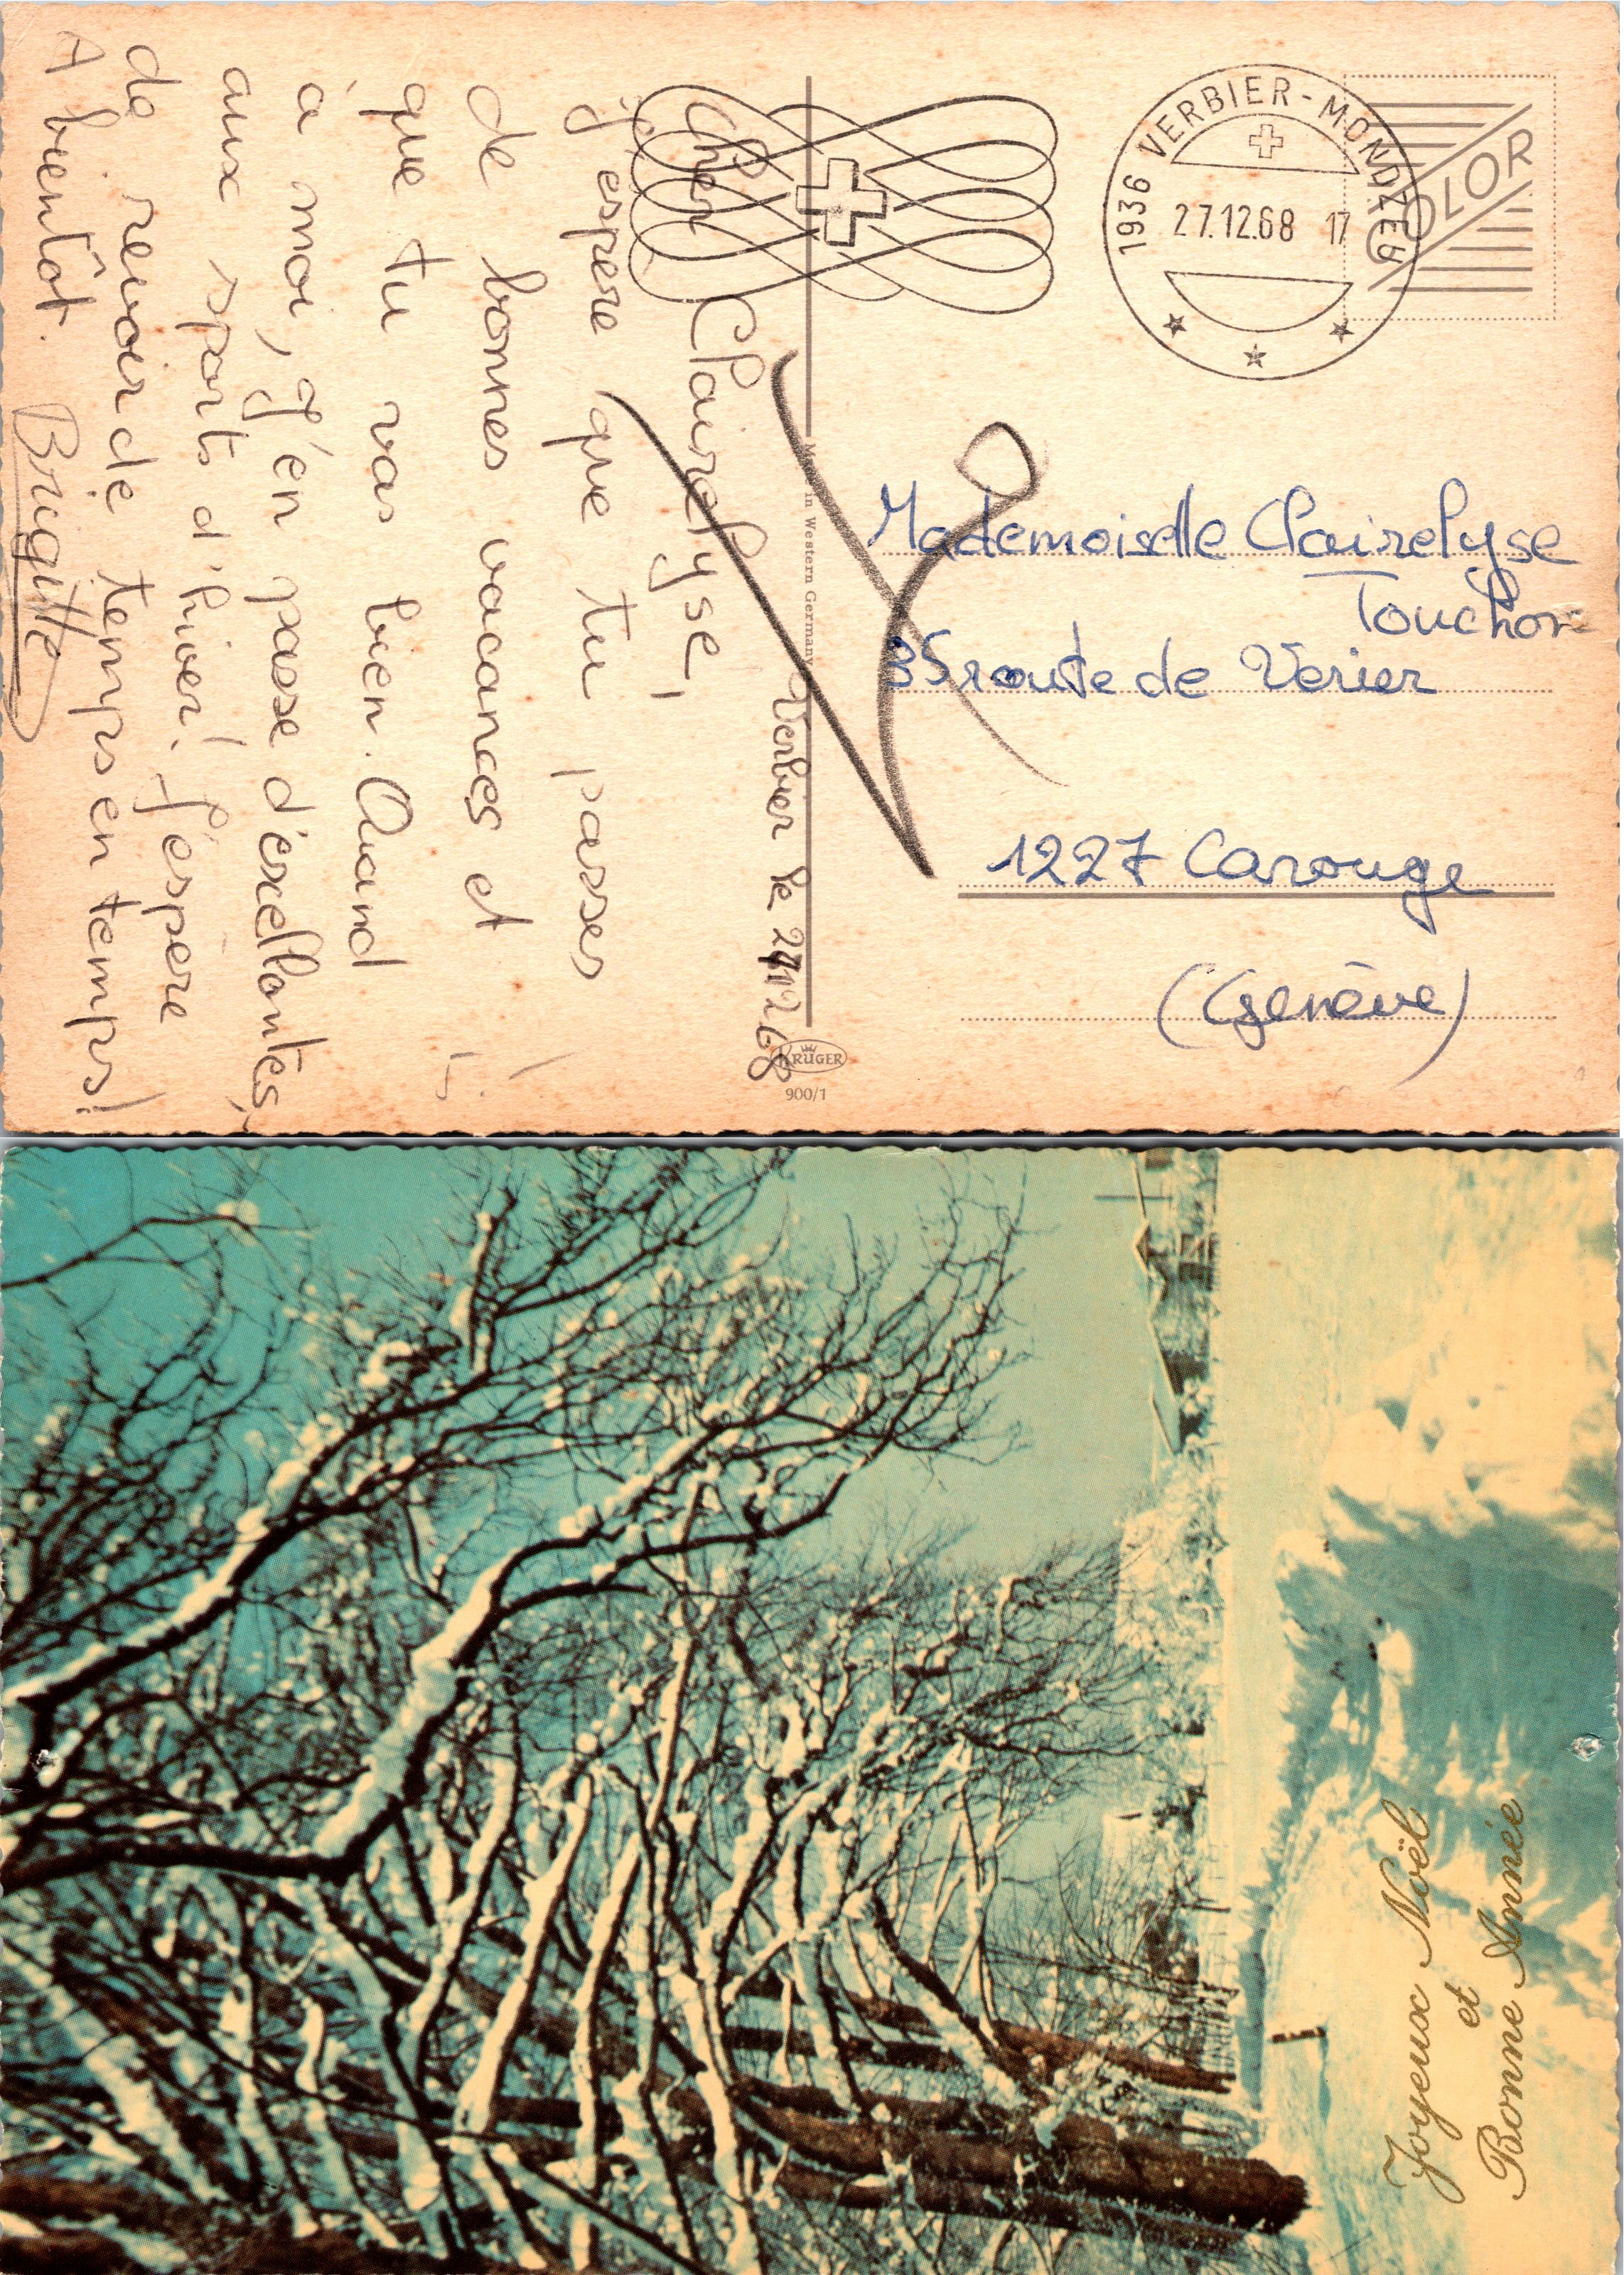 1936 VERBIER-MONDZEU
27.12.68 17
COLOR
Verbier le
Cher Clairelyse,
j'espere que tu passes
de bonnes vacances et
que tu vas bien. Quand
à moi, j'en passe d'exellantes,
aux sports d'hiver! J'espère
de revoir de temps en temps!
A bientôt. Brigitte
Made in Western Germany
KRÜGER
900/1
Mademoiselle Clairelyse
Touchon
35 route de Verier
1227 Carouge
(Genève)
Joyeux Noël
et
Bonne Année